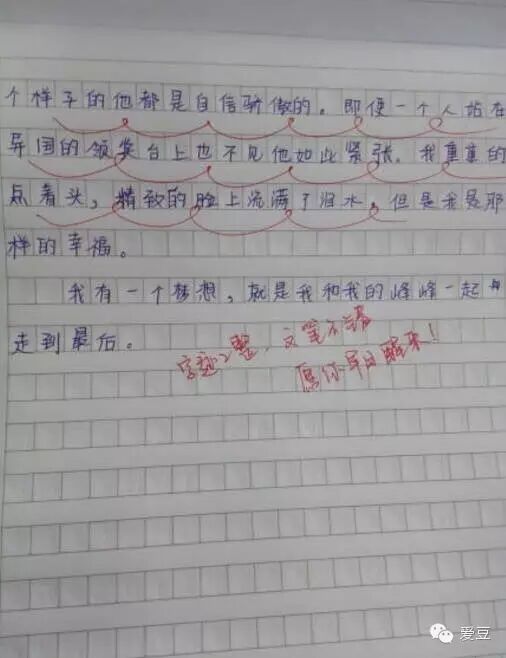 个样子的他都是自信骄傲的。即使一个人站在
异国的领奖台上也不见他如此紧张。我重重的
点着头，精致的脸上流满了泪水，但是我是那
样的幸福。
我有一个梦想，就是我和我的峰峰一起
走到最后。
字迹工整，文笔不错
愿你早日醒来！
爱豆